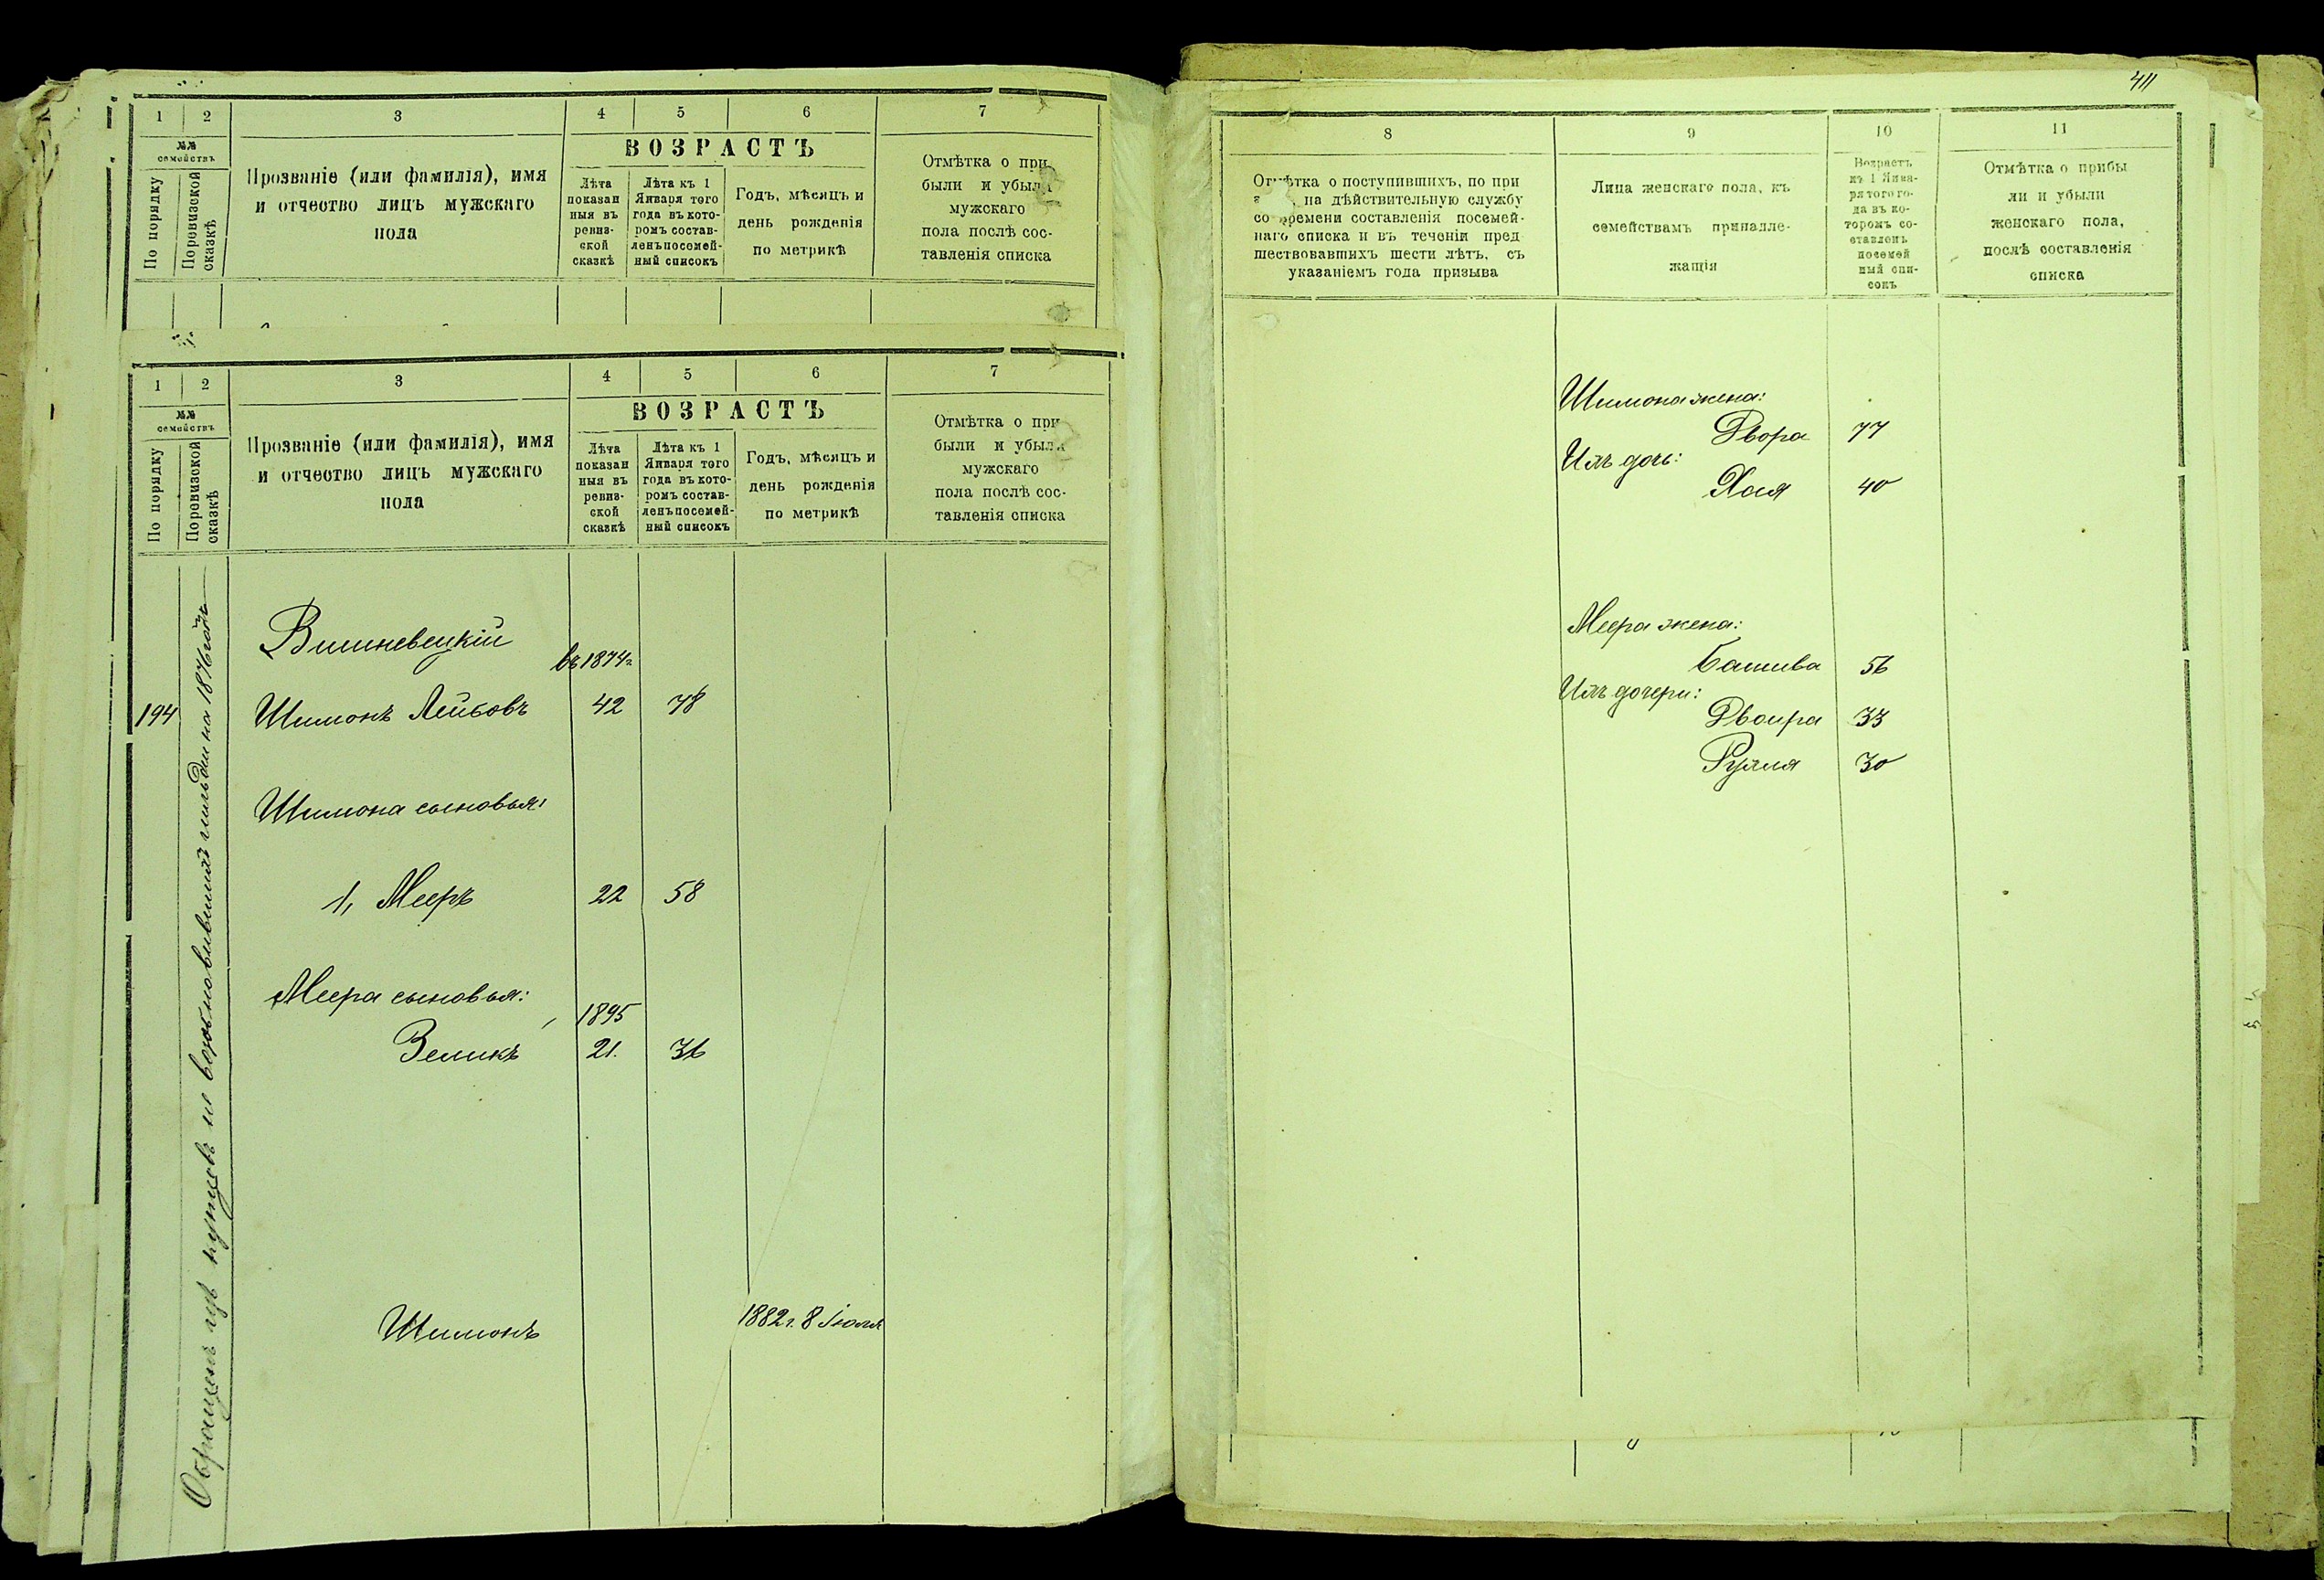 1 2 3 4 5 6 7
№№ семействъ
По порядку
По ревизской сказкѣ
Прозваніе (или фамилія), имя
и отчество лицъ мужскаго
пола
ВОЗРАСТЪ
Лѣта
показан
ныя въ
ревиз-
ской
сказкѣ
Лѣта къ 1
Января того
года въ кото-
ромъ состав-
ленъ посемей-
ный списокъ
Годъ, мѣсяцъ и
день рожденія
по метрикѣ
Отмѣтка о при
были и убыли
мужскаго
пола послѣ сос-
тавленія списка
1 2 3 4 5 6 7
№№
семействъ
По порядку
По ревизской
сказкѣ
Прозваніе (или фамилія), имя
и отчество лицъ мужскаго
пола
ВОЗРАСТЪ
Лѣта
показан
ныя въ
ревиз-
ской
сказкѣ
Лѣта къ 1
Января того
года въ кото-
ромъ состав-
ленъ посемей-
ный списокъ
Годъ, мѣсяцъ и
день рожденія
по метрикѣ
Отмѣтка о при
были и убыли
мужскаго
пола послѣ сос-
тавленія списка
Обращенъ изъ купцовъ не возобновившій гильдіи на 1876 годъ
Вишневецкій
въ 1874г
194 Шимонъ Лейбовъ 42 78
Шимона сыновья:
1, Мееръ 22 58
Меера сыновья:
1895
Зеликъ 21. 36
Шимонъ 1882 г. 8 Іюля
411
8 9 10 11
Отмѣтка о поступившихъ, по при
, на дѣйствительную службу
со времени составленія посемей-
наго списка и въ теченіи пред
шествовавшихъ шести лѣтъ, съ
указаніемъ года призыва
Лица женскаго пола, къ
семействамъ принадле-
жащія
Возрастъ
къ 1 Янва-
ря того го-
да въ ко-
торомъ со-
ставленъ
посемей
ный спи-
сокъ
Отмѣтка о прибы
ли и убыли
женскаго пола,
послѣ составленія
списка
Шимона жена:
Двора 77
Ихъ дочь:
Хая 40
Меера жена:
Башива 56
Ихъ дочери:
Двоира 33
Рухля 30